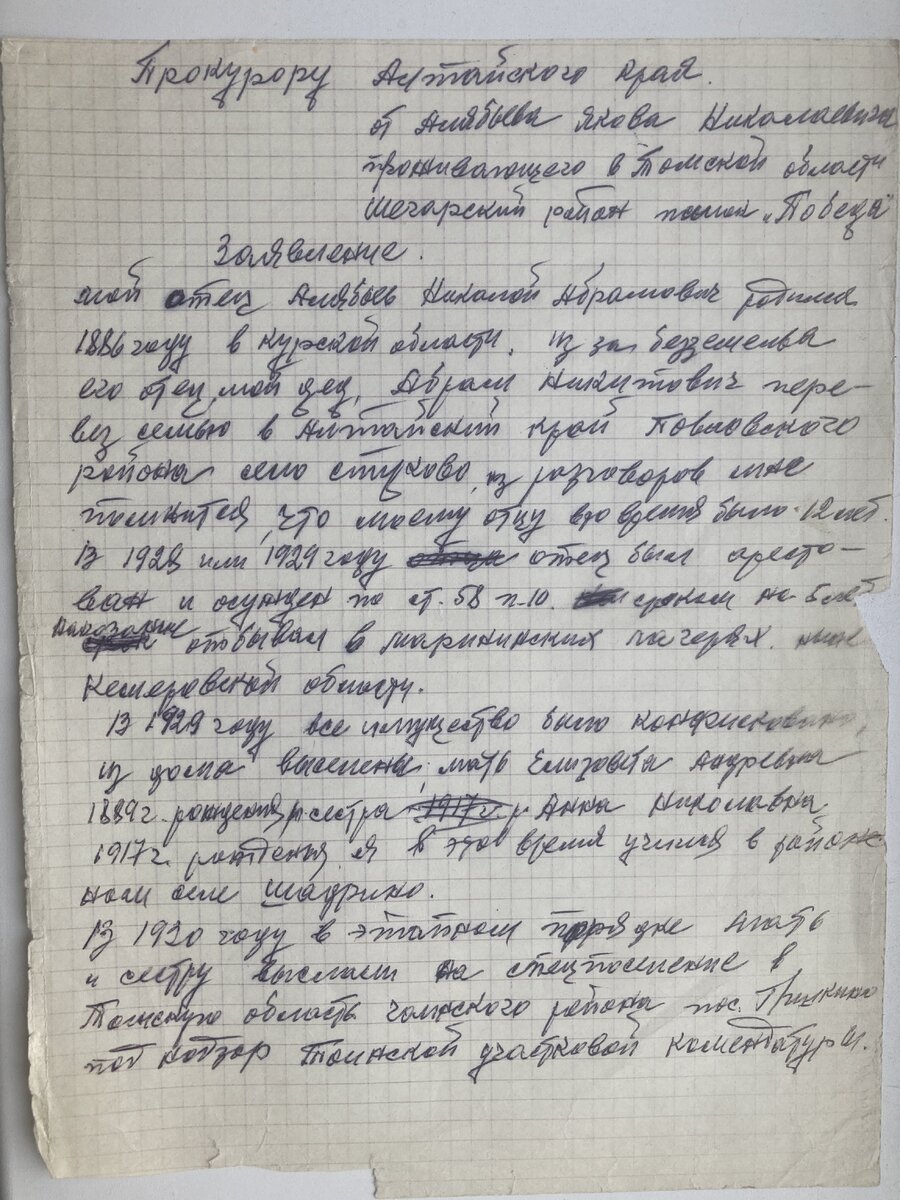 Прокурору Алтайского края.
от Алябьева Якова Николаевича
проживающего в Томской области
Шегарский район посёлок „Победа"
Заявление.
мой отец Алябьев Николой Абрамович родился
1886 году в Курской области. из за безземелья
его отец, мой дед, Абрам Никитович пере-
вёз семью в Алтайский край Повловского
района село Стуково, из разговоров мне
помнится, что моему отцу в то время было 12 лет.
В 1928 или 1929 году отец был аресто-
ван и осужден по ст. 58 п-10. сроком на 5 лет
наказание отбывал в мариинских лагерях. ныне
Кемеровской области.
В 1929 году все имущество было конфисковано,
из дома выселены: мать Елизовета Андревна
1889 г. рождения, и сестра Анна Николавна
1917 г. рожденья, я в это время учился в район-
ном селе Шадрино.
В 1930 году в этапном порядке мать
и сестру выслали на спецпоселение в
Томскую область чаинского района пос. Гришкино
под надзор Тоинской участковой комендатуры.